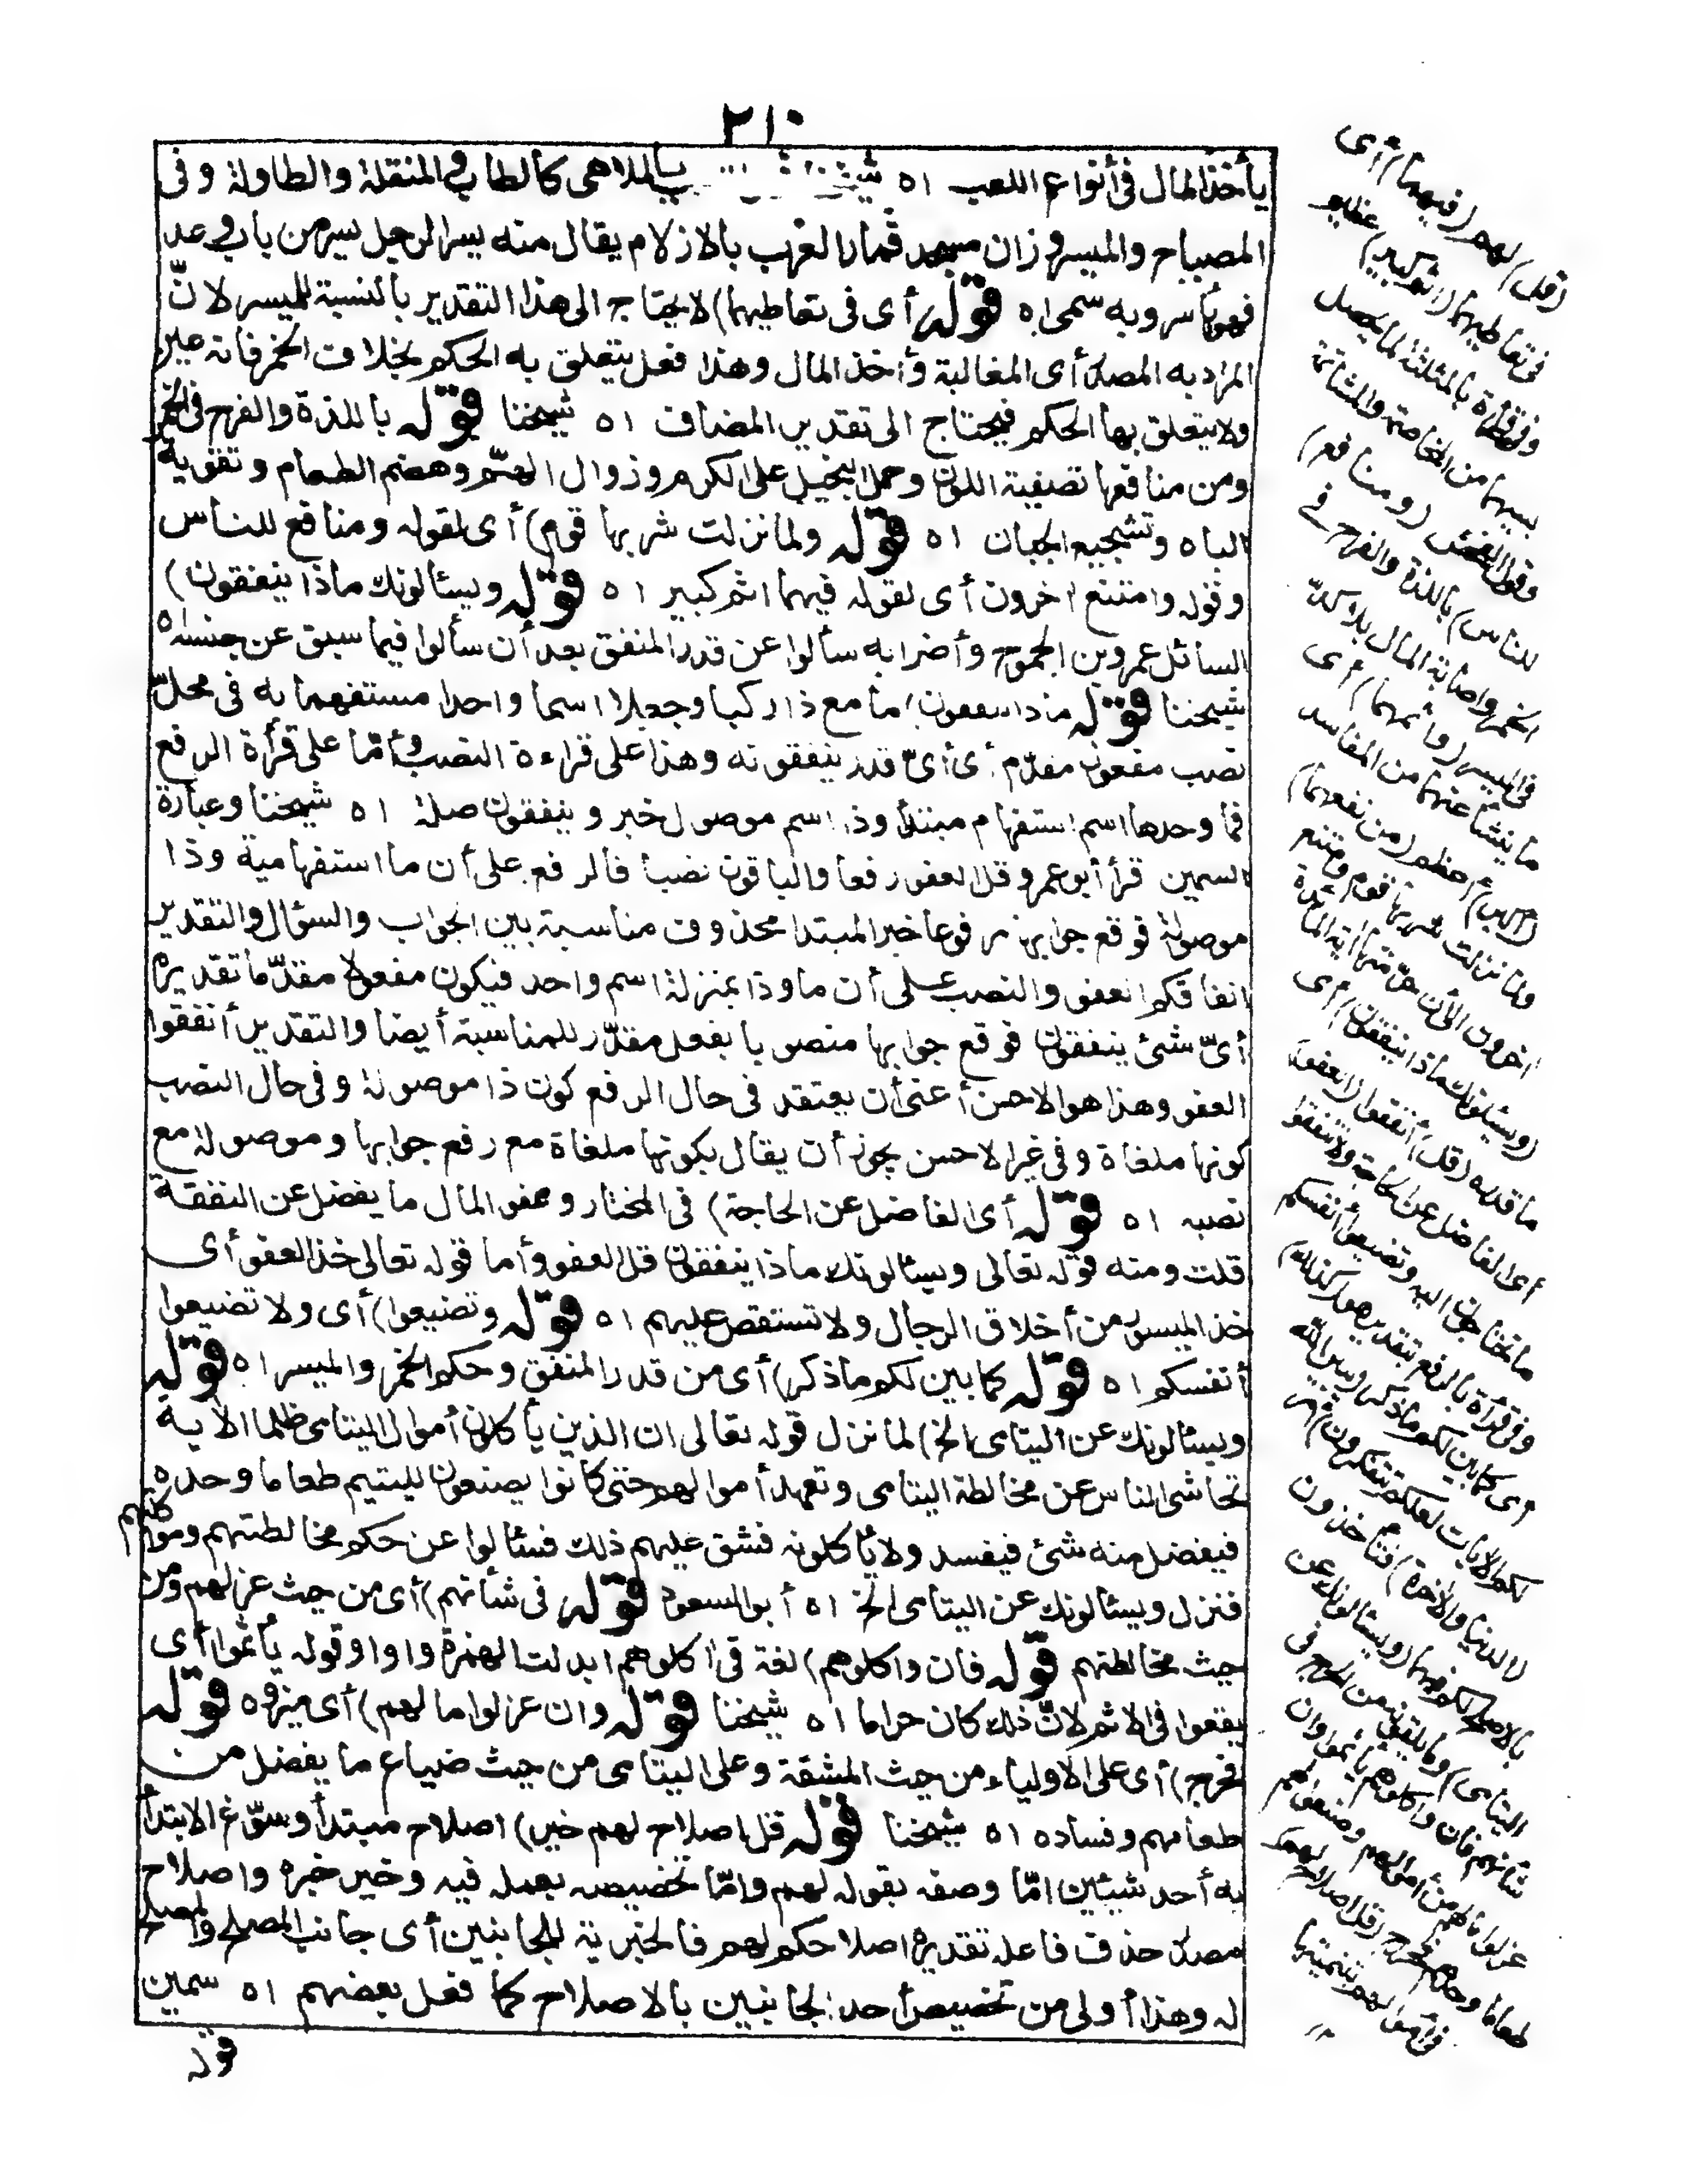 ٢١٠
يأخذ المال فى أنواع اللعب اه بالملاهى كالطاب والمنقلة والطاولة وفى
المصباح والميسر وزان مسجد قمار العرب بالازلام يقال منه يسر الرجل يسر من باب وعد
فهو ياسر وبه سمى اه قوله أى فى تعاطيهما) لا يحتاج الى هذا التقدير بالنسبة للميسر لانّ
المراد به المصدر أى المغالبة وأخذ المال وهذا فعل يتعلق به الحكم بخلاف الخمر فانه عين
ولا يتعلق بها الحكم فيحتاج الى تقدير المضاف اه شيخنا قوله باللذة والفرح فى الخمر
ومن منافعها تصفية اللون وحمل البخيل على الكرم وزوال الهمّ وهضم الطعام وتقوية
الباه وتشجيع الجبان اه قوله ولما نزلت شربها قوم) أى لقوله ومنافع للناس
وقوله وامتنع اخرون أى لقوله فيهما اثم كبير اه قوله ويسئالونك ماذا ينفقون)
السائل عمرو بن الجموح وأضرابه سألوا عن قدر المنفق بعد أن سألوا فيما سبق عن جنسه اه
شيخنا قوله ماذا ينفقون) ما مع ذا ركبا وجعلا اسما واحدا مستفهما به فى محلّ
نصب مفعول مقدّم أى أىّ قدر ينفقونه وهذا على قراءة النصب وأمّا على قرأة الرفع
فما وحدها اسم استفهام مبتدأ وذا اسم موصول خبر وينفقون صلة اه شيخنا وعبارة
السمين قرأ أبو عمرو قل العفو رفعا والباقون نصبا فالرفع على أن ما استفهامية وذا
موصولة فوقع جوابها مرفوعا خبر المبتدا محذوف مناسبة بين الجواب والسؤال والتقدير
انفاقكم العفو والنصب على أن ماوذا بمنزلة اسم واحد فيكون مفعولا مقدّما تقديره
أىّ شئ ينفقون فوقع جوابها منصوبا بفعل مقدّر للمناسبة أيضا والتقدير أنفقوا
العفو وهذا هو الاحسن أعنى أن يعتقد فى حال الرفع كون ذا موصولة وفى حال النصب
كونها ملغاة وفى غير الاحسن يجوز أن يقال بكونها ملغاة مع رفع جوابها وموصولة مع
نصبه اه قوله أى الفاضل عن الحاجة) فى المختار وعفو المال ما يفضل عن النفقة
قلت ومنه قوله تعالى ويسئالونك ماذا ينفقون قل العفو وأما قوله تعالى خذ العفو أى
خذ الميسور من أخلاق الرجال ولا تستقص عليهم اه قوله وتضيعوا) أى ولا تضيعوا
أنفسكم اه قوله كما بين لكم ماذكر) أى من قدر المنفق وحكم الخمر والميسر اه قوله
ويسئالونك عن اليتامى الخ) لما نزل قوله تعالى ان الذين يأكلون أموال اليتامى ظلما الأية
تحاشى الناس عن مخالطة اليتامى وتعهد أموالهم حتى كانوا يصنعون لليتيم طعاما وحده
فيفضل منه شئ فيفسد ولا يأكلونه فشق عليهم ذلك فسئالوا عن حكم مخالطتهم ومواكلتهم
فنزل ويسئالونك عن اليتامى الخ اه أبو السعود قوله فى شأنهم) أى من حيث عزلهم ومن
حيث مخالطتهم قوله فان واكلوهم) لغة فى اكلوهم ابدلت الهمزة واوا وقوله يأثموا أى
يقعوا فى الاثم لانّ ذلك كان حراما اه شيخنا قوله وان عزلوا ما لهم) أى ميزوه قوله
فحرج) أى على الأولياء من حيث المشقة وعلى اليتامى من حيث ضياع ما يفضل من
طعامهم وفساده اه شيخنا قوله قل اصلاح لهم خير) اصلاح مبتدأ وسوّغ الابتدأ
به أحد شيئين امّا وصفه بقوله لهم وامّا تخصيصه بعمله فيه وخير خبره واصلاح
مصدر حذف فاعله تقديره اصلاحكم لهم فالخيرية للجانبين أى جانب المصلح والمصلح
له وهذا أولى من تخصيص أحد الجانبين بالاصلاح كما فعل بعضهم اه سمين
قوله
(قل) لهم (فيهما) أى
فى تعاطيهما (اثم كبير) عظيم
وفى قرأة بالمثلثة لما يحصل
بسببهما من المخاصمة والمشاتمة
وقول الفحش (ومنافع
للناس) باللذة والفرح فى
الخمر واصابة المال بلا كدّ
فى الميسر (واثمهما) أى
ما ينشأ عنهما من المفاسد
(أكبر) أعظم (من نفعهما)
ولما نزلت شربها قوم وامتنع
اخرون الى أن حرّمتها اية المائدة
(ويسئلونك ماذا ينفقون) أى
ما قدره (قل) أنفقوا (العفو)
أى الفاضل عن الحاجة ولا تنفقوا
ما تحتاجون اليه وتضيعوا أنفسكم
وفى قرأة بالرفع بتقدير هو (كذلك)
أى كما بين لكم ماذكر (يبين الله
لكم الايات لعلكم تتفكرون) فى
(الدنيا والاخرة) فتأخذون
بالاصلح لكم فيهما (ويسئالونك عن
اليتامى) وما يلقونه من الحرج فى
شأنهم فان واكلوهم يأثموا وان
عزلوا ما لهم من أموالهم وصنعوا لهم
طعاما وحدهم فحرج (قل اصلاح لهم)
فى أموالهم بتنميتها